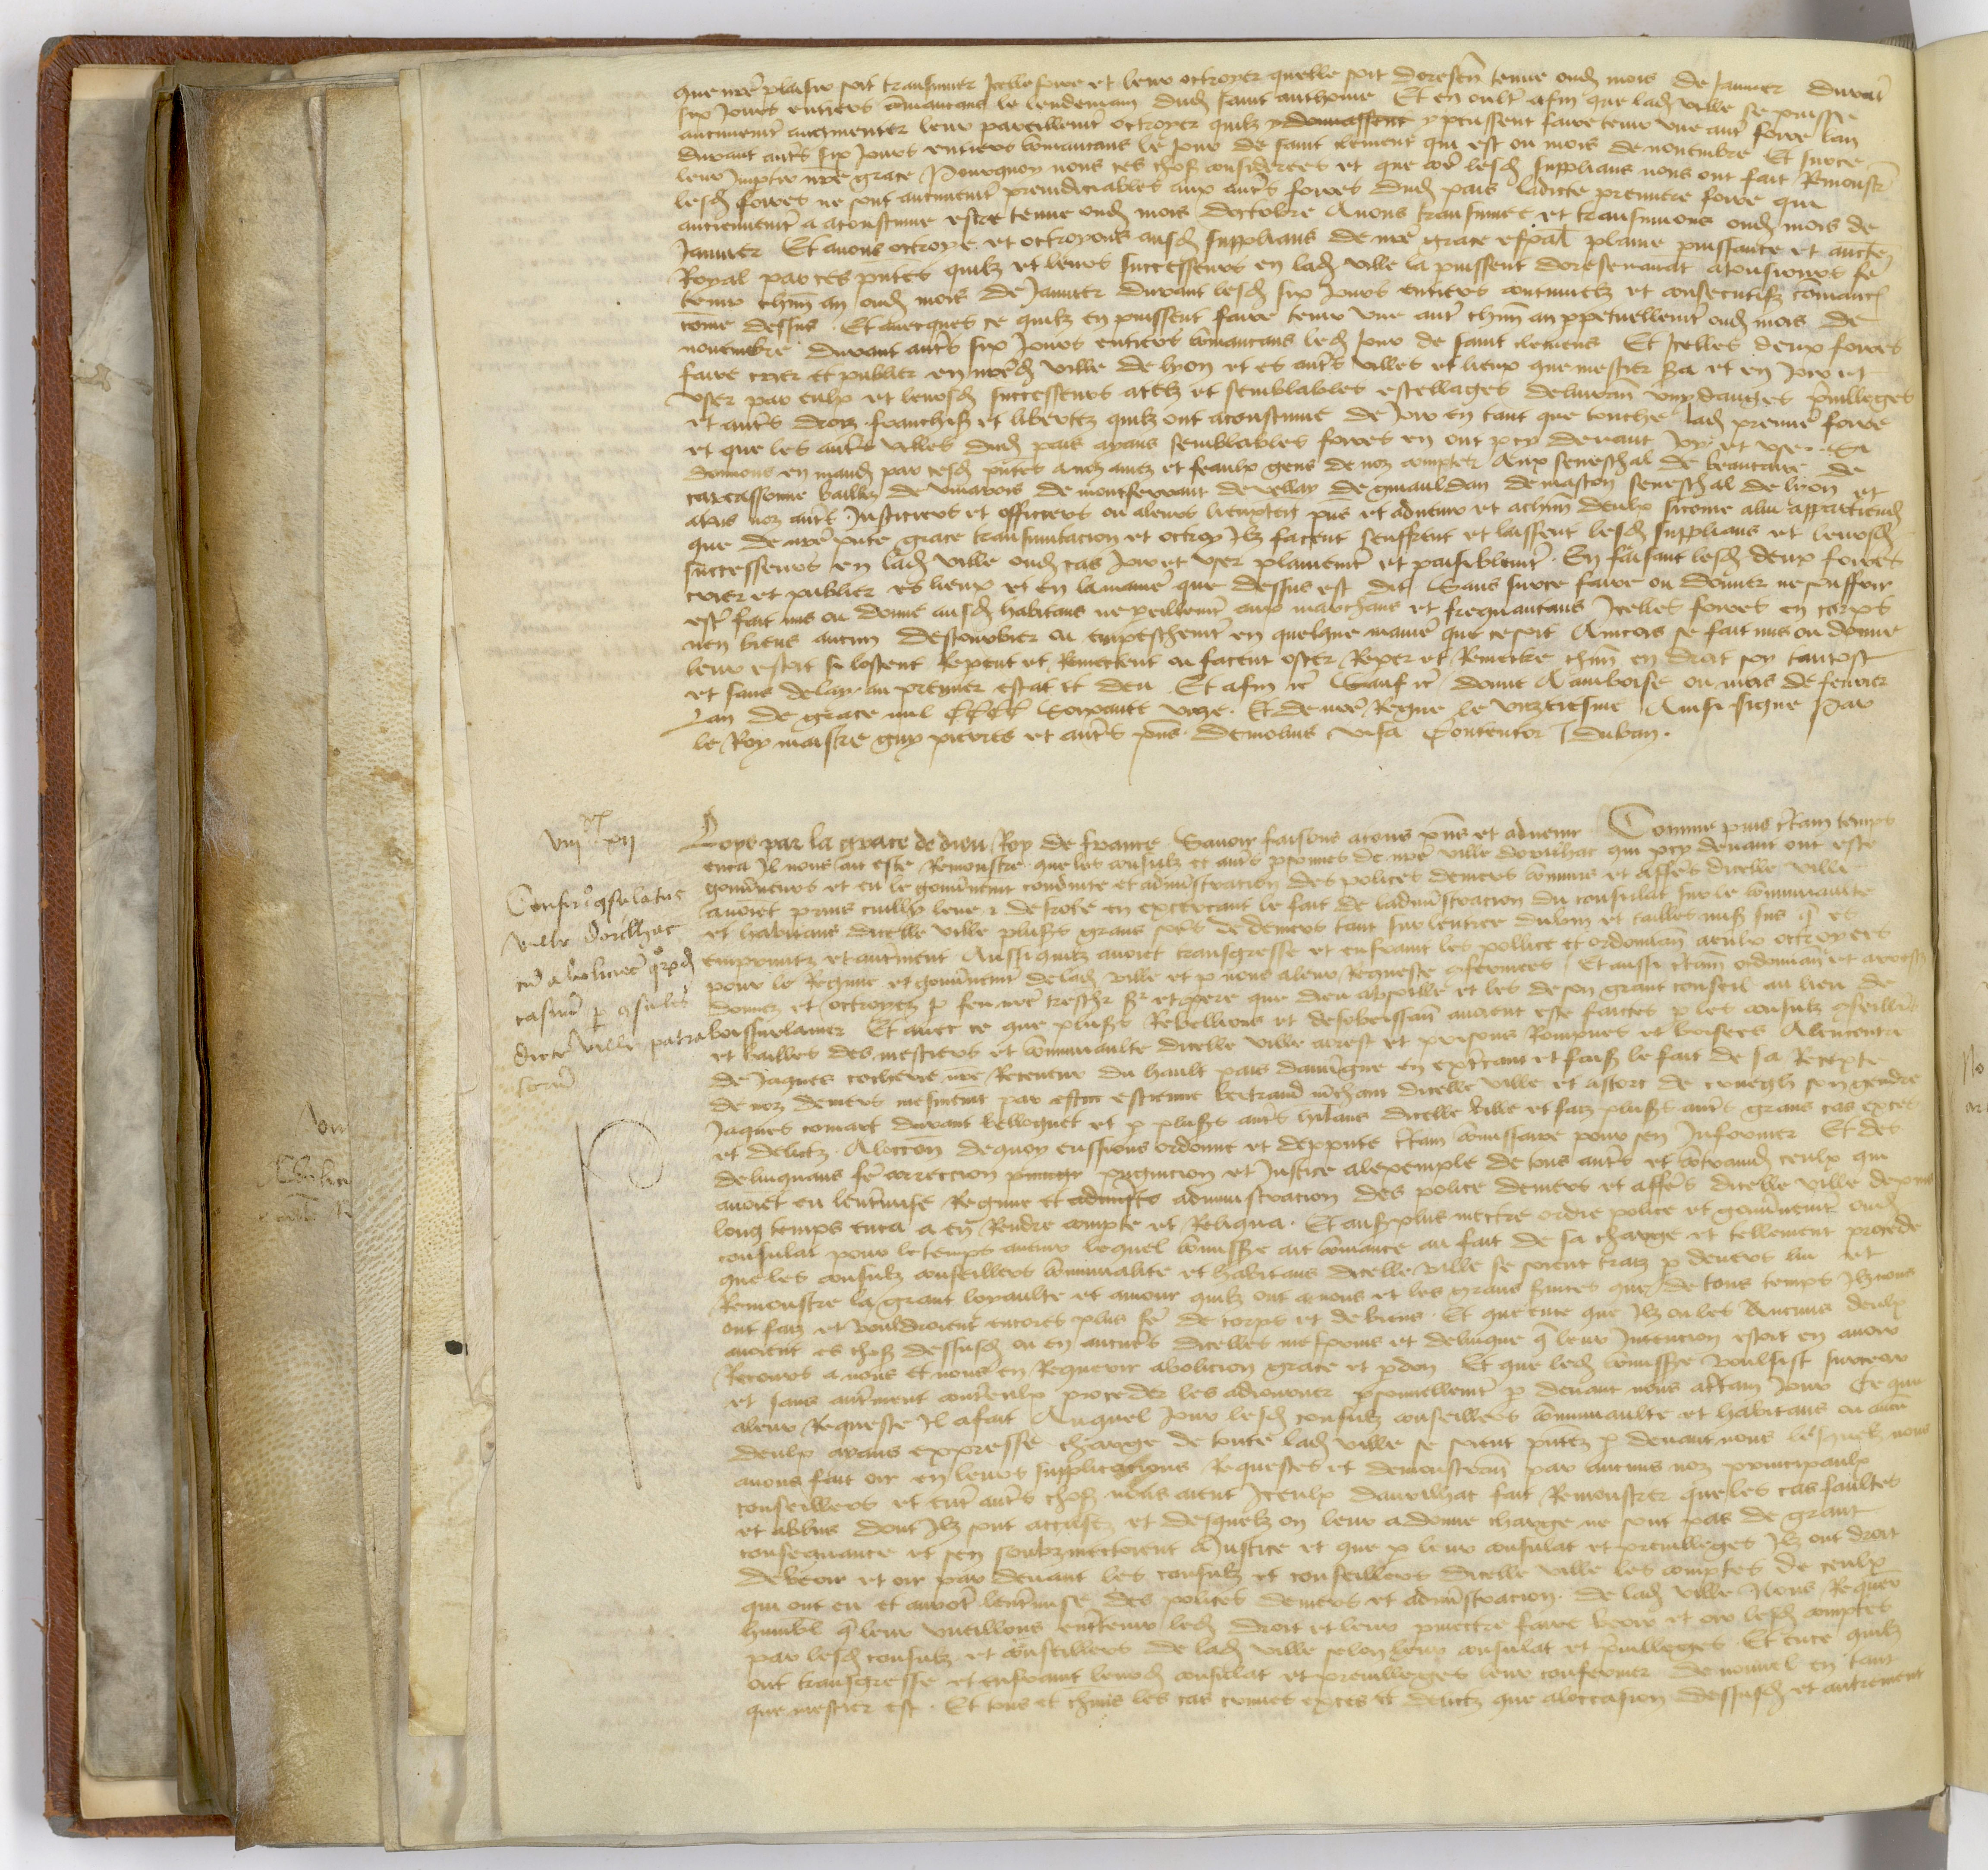 que nre plaisir soit transmuer Icelle foire et leur octroyer quelle soit doresen tenue oud mois de Januier durat
six Jours entiers comancans le lendemain dud saint anthoine Et en oultr afin que lad ville se puisse
aucunemt augmenter leur pareillemt octroyer quilz y donnassent y peussent faire tenir vne autr foire lan
durant autrs six Jours entiers comancans le Jour de saint clement qui est ou mois de nouembre Et sur ce
leur Impartir nre grace Pourquoy nous ces chos considerees et que come lesd supplians nous ont fait Remonstr
lesd foires ne sont aucunemt preiudiciables aux autrs foires dud pais ladicte premiere foire qui
anciennemt a acoustume estre tenue oud mois doctobre Auons transmuee et transmuons oud mois de
Januier Et auons octroye et octroyons ausd supplians de nre grace espal plaine puissance et aucte
Royal par ces pntes quilz et leurs successeurs en lad ville la puissent doresenauat atousiours fe
tenir chun an oud mois de Januier durant lesd six Jours entiers continuelz et consecutifz comanc
come dessus Et auecques ce quilz en puissent faire tenir vne autr chun an ppetuellemt oud mois de
nouembre durant autrs six Jours entiers comancans led Jour de saint clemens Et Icelles deux foires
faire crier et publier en nred ville de lyon et es autrs villes et lieux que mestier sera et en Joir et
vser par eulx et leursd successeurs atelz et semblables estellages deliuran vuydanges priuilleges
et autrs droiz franchis et libertez quilz ont acoustume de Joir en tant que touche lad premie foire
et que les autrs villes dud pais ayans semblables foires en ont p cy deuant Joy et vse Si
donnons en mand par cesd pntes a noz amez et feaulx gens de noz comptes Aux seneschal de beaucaire de
carcassonne bailliz de viuarois de montferrant de vellay de giuauldan de mascon seneschal de lyon et
atous noz autrs Justiciers et officiers ou aleurs lieuxten pns et aduenir et achun deulx sicome alui appartiend
que de nre pnte grace transmutacion et octroy Ilz facent seuffrent et laissent lesd supplians et leursd
successeurs en lad ville oud cas Joir et vser plainemt et paisiblemt En faisant lesd deux foires
crier et publier es lieux et en la manie que dessus est dit Sans sur ce faire ou donner ne souffrir
estr fait mis ou donne ausd habitans ne pareillemt aux marchans et frequantans Icelles foires en corps
nen biens aucun destourbier ou empeschemt en quelque manie que ce soit Aincois se fait mis ou donne
leur estoit si lostent Repent et Remectent ou facent oster Reper et Remectre chun en droit soy tantost
et sans delay au premier estat et deu Et afin et Sauf et donne A amboise ou mois de feurier
Lan de grace mil cccc Soixante vnze Et de nre Regne le vnzeiesme Ainsi signe Par
le Roy maistre guy pieres et autrs pns Demolins visa Contentor Duban
viiixx xii
Confir qsulatus
ville Doulhac
cu abolicoe qrd
casuu p qsules
dicte ville patra
toru
Loys par la grace de dieu Roy de france Sauoir faisons atous pns et aduenir Comme puis ctain temps
enca Il nous ait este Remonstre que les consulz et autrs psonnes de nre ville dorilhac qui p cy deuant ont este
gouuneurs et eu le gouunemt conduite et administracion des polices deniers comuns et affes dicelle ville
auoiet prins cuilly leue et desrobe en excercant le fait de ladmistracion du consulat sur le communaulte
et habitans dicelle ville plusrs grans soes de deniers tant sur lentree du vin et tailles mis sus qe es
empruntz et autrement Aussi quilz auoiet transgresse et enfraint les pollice et ordonnan aeulx octroyees
pour le Regime et gouunemt de lad ville et p nous a leur Requeste cfermees Et aussi ctain ordonnan et arrestz
donnez et octroyez p feu nre treschr sr et pere que dieu absoille et les de son grant conseil au lieu de
boissurlamer Et auec ce que plusrs Rebellions et desobeissan auoient este faictes p les consulz cseillrs
et bailles des mestiers et communaulte dicelle ville arrest et prisons Rompues et brisees Alencontre
de Jaques cochere nre Receueur du hault pais dauugne en excercant et fais le fait de sa Recepte
de noz deniers mesmemt par estienne bertrand mchant dicelle ville et astorc de son gendre
Jaques comart durant belloquet et p plusrs autrs hitans dicelle ville et faiz plusrs autrs grans cas exces
et delictz Aloccon dequoy eussions ordonne et deppute ctain comissaire pour sen Informer Et des
delinquans fe correccion pugnicion et Justice alexemple de tous autrs et contraind ceulx qui
auoiet eu lentmise Regime et administracion des police deniers et affes dicelle ville depuis
long temps enca a en Rendre compte et Reliqua Et ausplus mectre ordre police et gouunemt oud
consulat pour le temps auenir lequel comisse ait comance au fait de sa charge et tellement procede
que les consulz conseillers communalte et habitans dicelle ville se soient traiz p deuers lui et
Remonstre la grant loyaulte et amour quilz ont anous et les grans suices que de tous temps Ilz nous
ont faiz et vouldroient encores plus fe de corps et de biens Et que ence que Ilz ou les Aucuns deulx
auoient es chos dessusd ou en aucunes dicelles mesprins et delinque q leur Intencion estoit en auoir
Recours a nous et nous en Requerir abolicion grace et pdon Et que led comisse voulsist surceoir
et sans autrment contr eulx proceder les adiourner psonnellemt p deuant nous a ctain Jour Ce que
a leur Requeste Il a fait Auquel Jour lesd consulz conseillers communaulte et habitans ou aucus
deulx ayans expresse charge de toute lad ville se soient pntez p deuant nous lesquelz nous
auons fait oir en leurs supplicacions Requestes et demonstran par aucuns noz principaulx
conseillers et entr autrs chos nous aient Iceulx daurilhac fait Remonstrer que les cas faultes
et abbus dont Ilz sont accusez et desquelz on leur a donne charge ne sont pas de grant
consequance et sen soubzmectoient a Justice et que p leur consulat et preuilleges Ilz ont droit
de veoir et oir par deuant les consulz et conseillers dicelle ville les comptes de ceulx
qui ont eu et auroet lentrmise des polices deniers et admistracion de lad ville Nous Requer
humbl q leur vueillons entretenir led droit et leur pmectre faire veoir et oir lesd comptes
par lesd consulz et conseillers de lad ville selon leur consulat et priuilleges Et ence quilz
ont transgresse et enfraint leursd consulat et preuilleges leur confermer de nouuel en tant
que mestier est Et tous et chuns les cas crimes exces et delictz que aloccasion dessusd et autrement